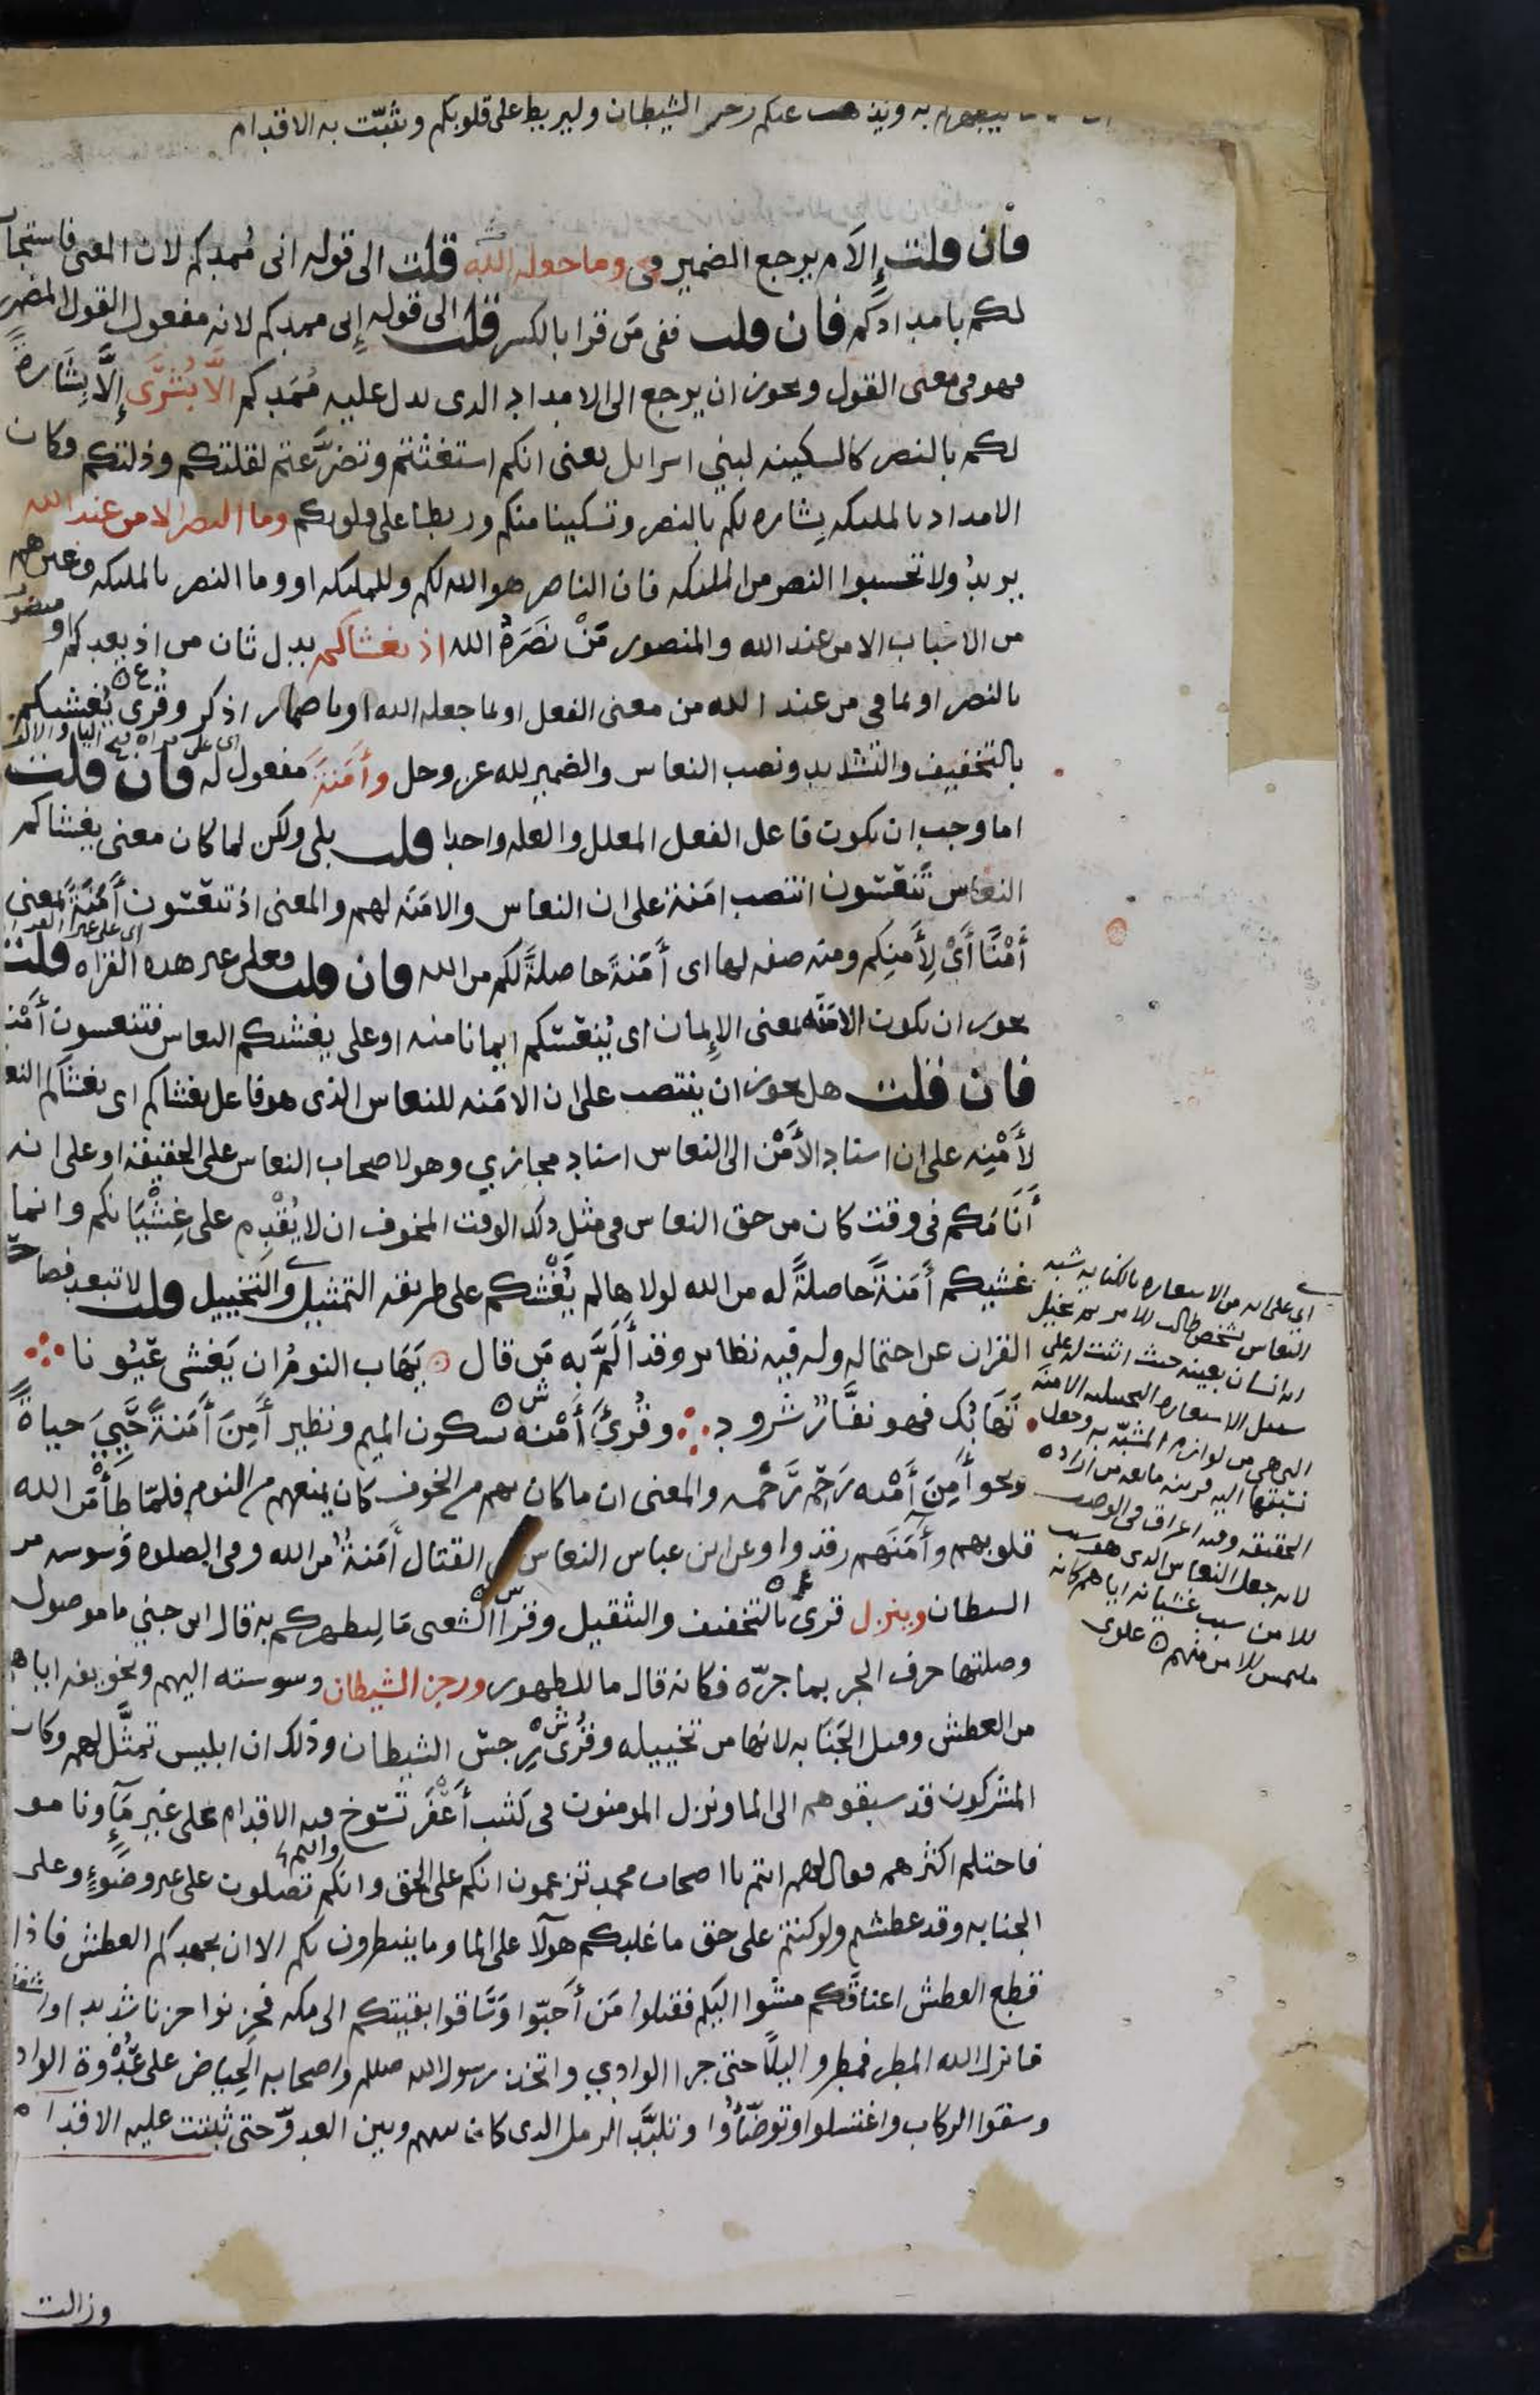 به ويذهب عنكم رجز الشيطان وليربط على قلوبكم ويثبّت به الاقدام
فان قلت إلَامَ يرجع الضمير فى وما جعله الله قلت الى قوله انى مُمدكم لان المعنى فاستجاب
لكم بامدادكم فان قلت ففى مَن قرا بالكسر قلت الى قوله إنى ممدكم لانه مفعول القول المضمر
فهو فى معنى القول ويجوز ان يرجع الى الامداد الذى يدل عليه مُمَدكم الَّا بُشْرَى إلَّا بِشَارةً
لكم بالنصر كالسكينه لبني اسرايل يعنى انكم استغثتم وتضرَّعتم لقلتكم وذلتكم فكان
الامداد بالمليكه بِشاره لكم بالنصر وتسكينا منكم وربطا على قلوبكم وما النصر الا من عند الله
يريدُ ولا تحسبوا النصر من المليكه فان الناصر هو الله لكم وللمليكه او وما النصر بالمليكه وغيرهم
من الاسباب الا من عند الله والمنصور مَنْ نَصَرَهُ الله اذ يغشاكم بدل ثان من اذ يعدكم او منصوب
بالنصر او بما فى من عند الله من معنى الفعل او بما جعله الله او باضمار اذكر وقُرى يُغْشيكم
بالتخفيف والتشديد ونصب النعاس والضمير لله عز وجل وأَمَنَةَ مفعول له فان قلت
اما وجب ان يكون فاعل الفعل المعلل والعله واحدا قلت بلى ولكن لما كان معنى يغشاكم
النعاس تَنعَسون انتصب امَنة على ان النعاس والامَنَه لهم والمعنى اذ تنعَسون أَمَنَةً بمعنى
أَمْنًا أَىْ لِأَمنِكم ومنه صفه لها اى أَمَنةً حاصلةً لكم من الله فان قلت فعلى غير هده القراه قلت
يجوز ان يكون الامَنَه بمعنى الإيمان اى يُنعَسكم ايمانا منه او على يغشيكم النعاس فتنعسون أَمْنا
فان قلت هل يجوز ان ينتصب على ان الامَنه للنعاس الذى هو فاعل يغشاكم اى يغشاكم النعاس
لأَمْنِه على ان اسناد الأَمْن الى النعاس اسناد مجازي وهو لاصحاب النعاس على الحقيقة او على انه
أَنَامَكم فى وقت كان من حق النعاس فى مثل ذلك الوقت المخوف ان لا يُقْدِم على غِشْيَانكم وانما
غشيكم أَمَنةً حاصلةً له من الله لولاها لم يُغْشكم على طريقه التمثيل والتخييل قلت لا تبعد فصاحه
القران عن احتماله وله فيه نظاير وقد أَلَمَّ به مَن قال يَهَاب النومُ ان يَغشى عيُونا
تَهَابُك فهو نفَّارٌ شرود وقُرئ أَمْنَه بسكون الميم ونظير أَمِنَ أَمَنةً حَيِىَ حياةً
ونحو أَمِنَ أَمْنه رَحِم رَحْمه والمعنى ان ما كان بهم من الخوف كان يمنعهم من النوم فلمّا طَأْمَن الله
قلوبهم وآمَنَهم رقدوا وعن ابن عباس النعاس فى القتال أَمَنةٌ من الله وفى الصلوه وَسوسه من
الشيطان وينزل قرئ بالتخفيف والتثقيل وقرا الشعبى مَا لِيطهركم به قال ابن جني ما موصول
وصلتها حرف الجر بما جرّه فكانه قال ما للطهور ورجز الشيطان وسوسته اليهم وتخويفه اياهم
من العطش وقيل الجَنَابه لانها من تخييله وقُرئ رِجس الشيطان وذلك ان ابليس تمثَّل لهم وكان
المشركون قد سبقوهم الى الما ونزل المومنون فى كثب أعْفَر تَسُوخ فيه الاقدام على غير مَآءٍ ونامو
فاحتلم اكثرهم فقال لهم انتم يا اصحاب محمد تزعمون انكم على الحق وانكم تصلون على غير وضوءٍ وعلى
الجنابه وقد عطشتم ولو كنتم على حق ما غلبكم هولآ على الما وما ينتظرون بكم الا ان يجهدكم العطش فاذا
قطع العطش اعناقَكم مشَوا اليكم فقتلوا مَن أَحبّوا وَسَاقوا بقيتكم الى مكه فحزنوا حزنا شديدا واشفقوا
فانزل الله المطر فمطروا ليلًا حتى جرا الوادي واتخذ رسول الله صللم واصحابه الحِياض على عُدْوة الواد
وسقوا الركاب واغتسلوا وتوضّأُوا وتلبَّد الرمل الذى كان بينهم وبين العدوّ حتى ثبتت عليه الاقدام
وزالت
اى على انه من الاستعاره بالكنايه شبه
النعاس بشخص طالب للامن ثم تخيل
انه انسان بعينه حيث اثبت له على
سبيل الاستعاره التخييليه الامنه
التى هى من لوازم المشبّه به وجعل
نسبتها اليه قرينه مانعه من اراده
الحقيقه وفيه اغراق فى الوصف
لانه جعل النعاس الذى هو سبب
للامن سبب غشيانه اياهم كانه
ملتمس للامن منهم علوى